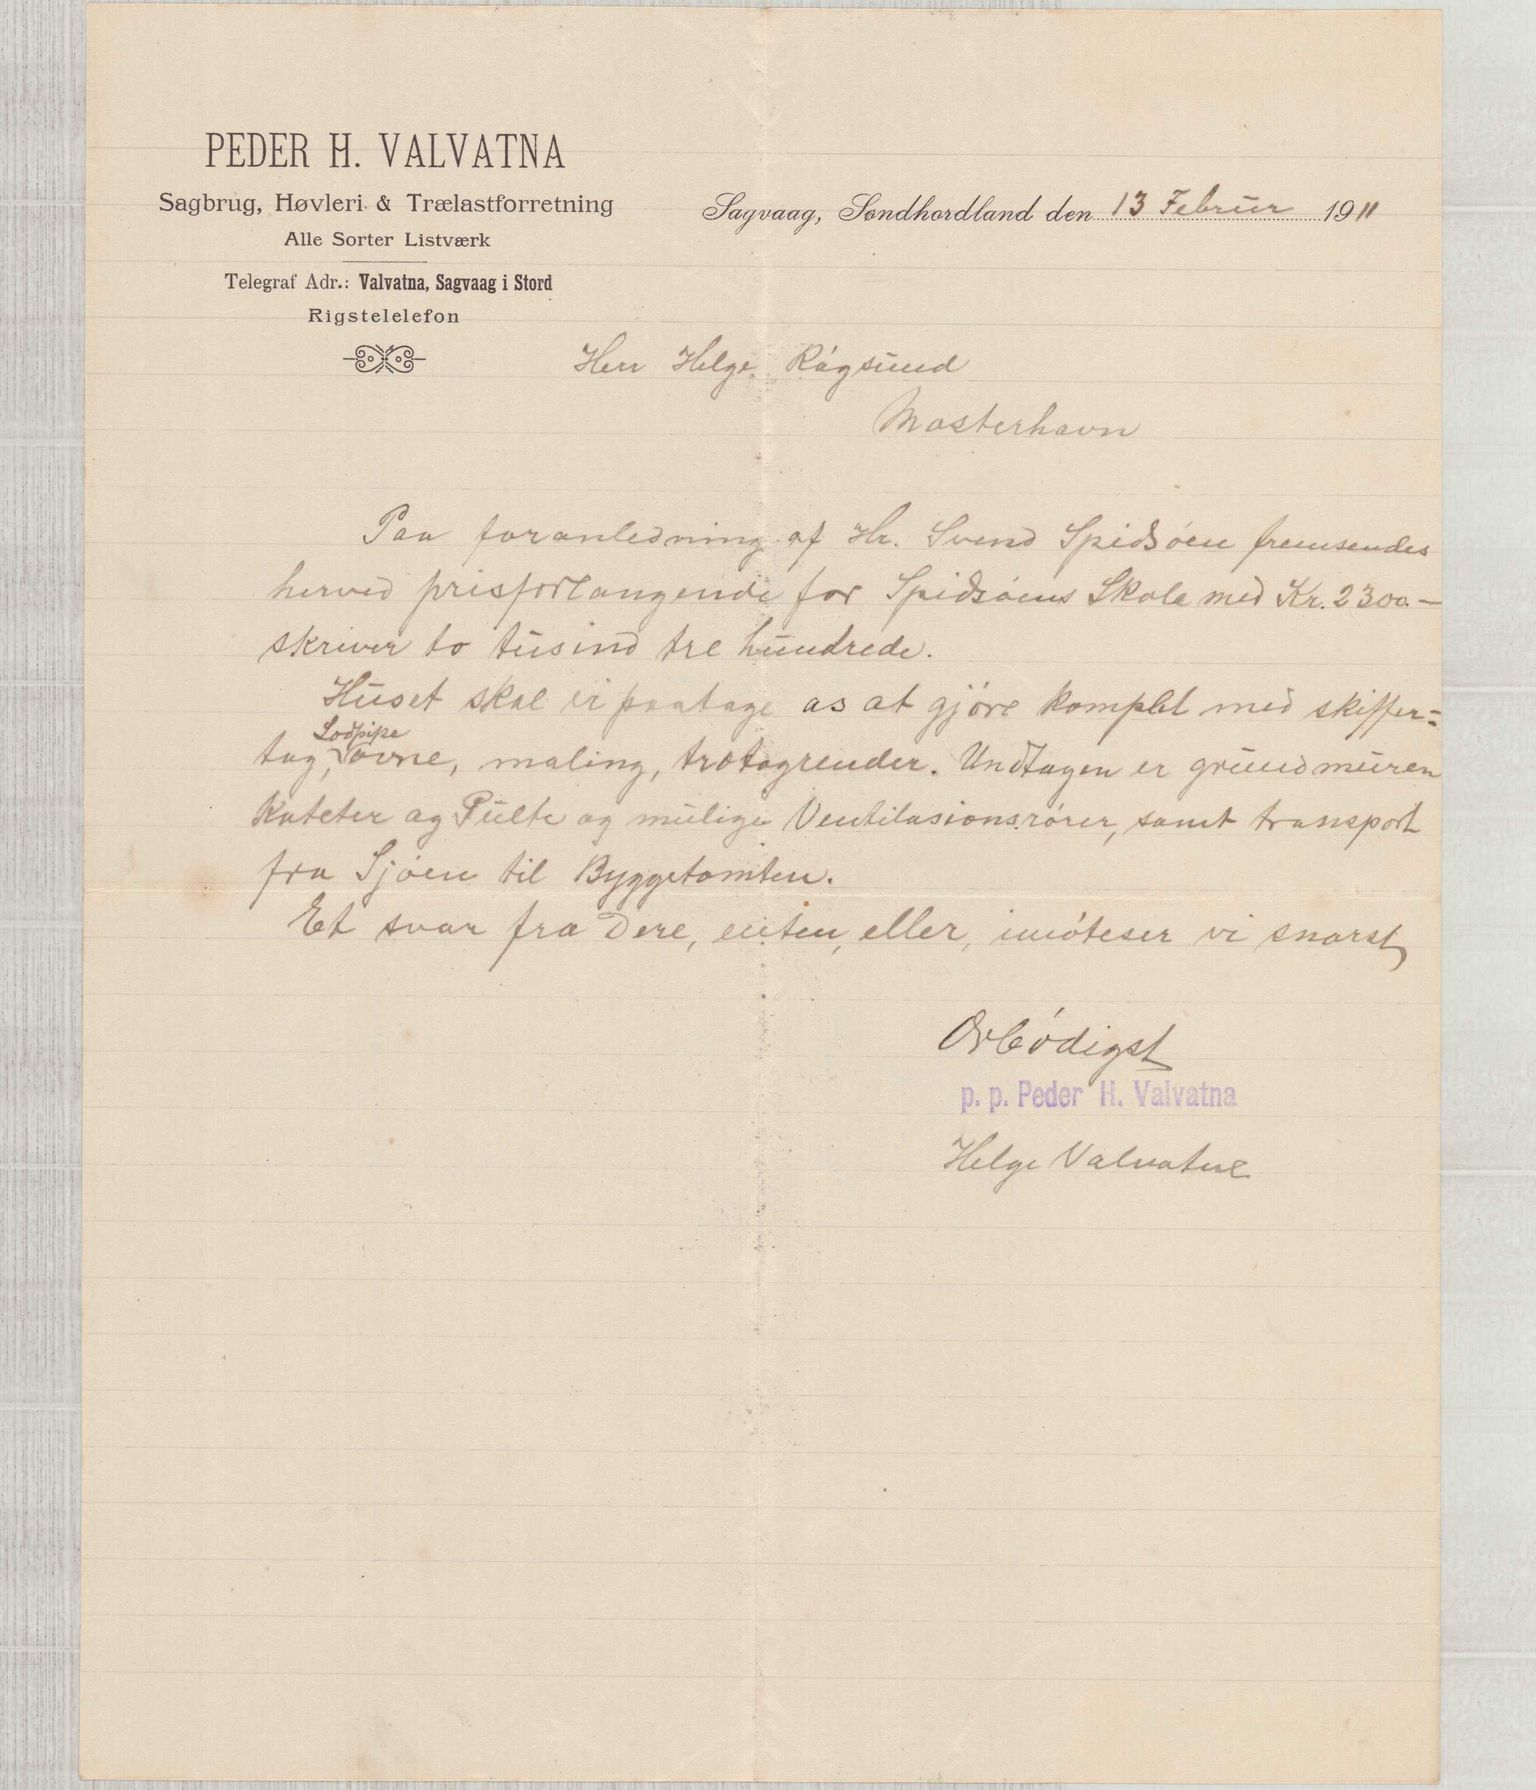 PEDER H. VALVATNA
Sagbrug, Høvleri & Trælastforretning
Alle Sorter Listværk
Telegraf Adr.: Valvatna, Sagvaag i Stord
Rigstelelefon
Sagvaag, Søndhordland den 13 Februr 1911
Herr Helge Rágsund
Mosterhavn
Paa foranledning af Hr. Svend Spidsóen fremsendes
herved prisforlangende for Spidsóens Skole med Kr. 2300.—
skriver to tusind tre hundrede.
Huset skal vi paatage os at gjóre komplet med skiffer=
Lodpipe
tag, ovne, maling, trotagrender. Undtagen er grundmuren
Kateter og Pulte og mulige Ventilasionsrórer, samt transport
fra Sjóen til Byggetomten.
Et svar fra Dere, enten, eller, imóteser vi snarst
Ærbódigst
p. p. Peder H. Valvatna
Helge Valvatne